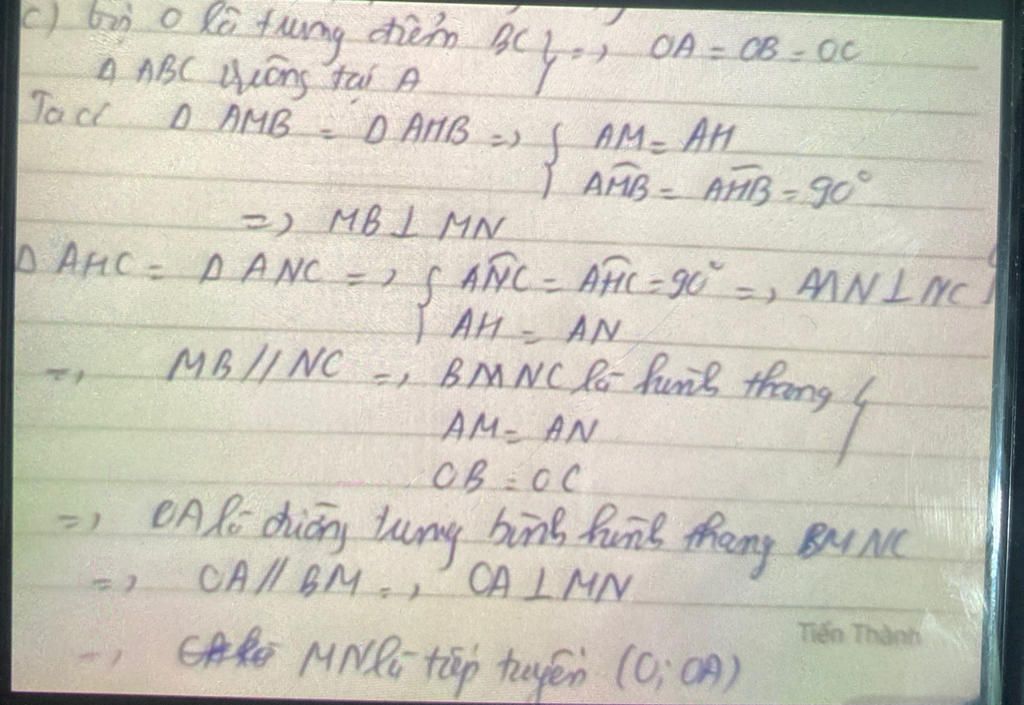 c) Gọi O là trung điểm BC } => OA = OB = OC
Δ ABC vuông tại A
Ta có Δ AMB = Δ AHB => { AM = AH
AMB = AHB = 90°
=> MB ⊥ MN
Δ AHC = Δ ANC => { ANC = AHC = 90° => MN ⊥ NC }
AH = AN
=> MB // NC => BMNC là hình thang }
AM = AN
OB = OC
=> OA là đường trung bình hình thang BMNC
=> OA // BM => OA ⊥ MN
Tiến Thành
=> MN là tiếp tuyến (O; OA)